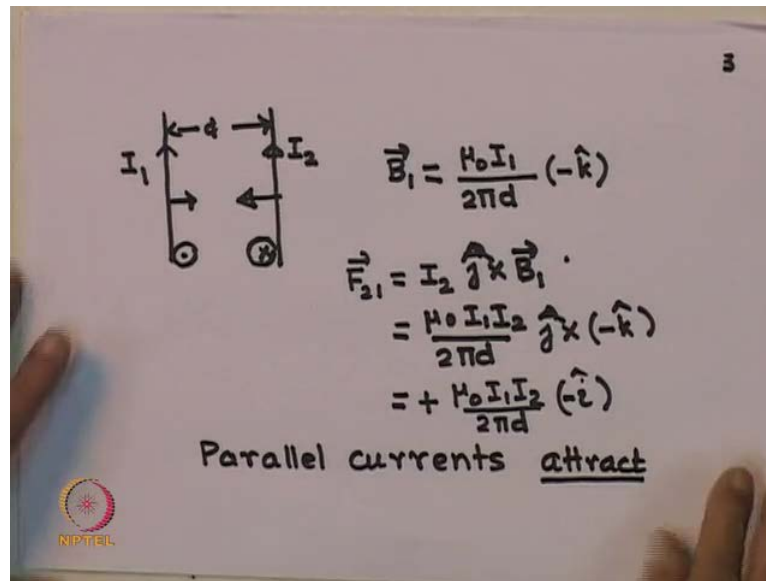 3
d
I₁ I₂
B⃗₁ = μ₀I₁ / 2πd (-k̂)
F⃗₂₁ = I₂ ĵ × B⃗₁ .
= μ₀I₁I₂ / 2πd ĵ × (-k̂)
= + μ₀I₁I₂ / 2πd (-î)
Parallel currents attract
NPTEL